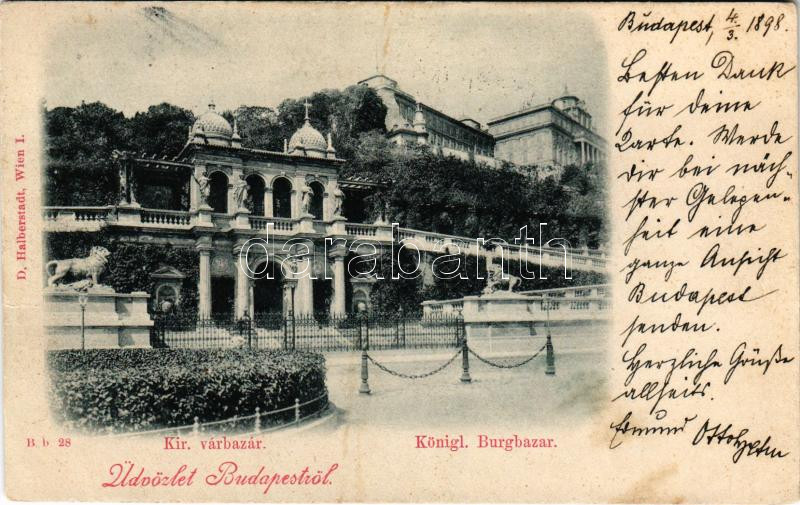 Budapest, 4/3. 1898.
Besten Dank
für deine
Karte. Werde
dir bei näch-
ster Gelegen-
heit eine
ganze Ansicht
Budapest
senden.
Herzliche Grüße
allseits.
Edmund
D. Halberstadt, Wien I.
darabanth
B. b. 28
Kir. várbazár.
Königl. Burgbazar.
Üdvözlet Budapestről.